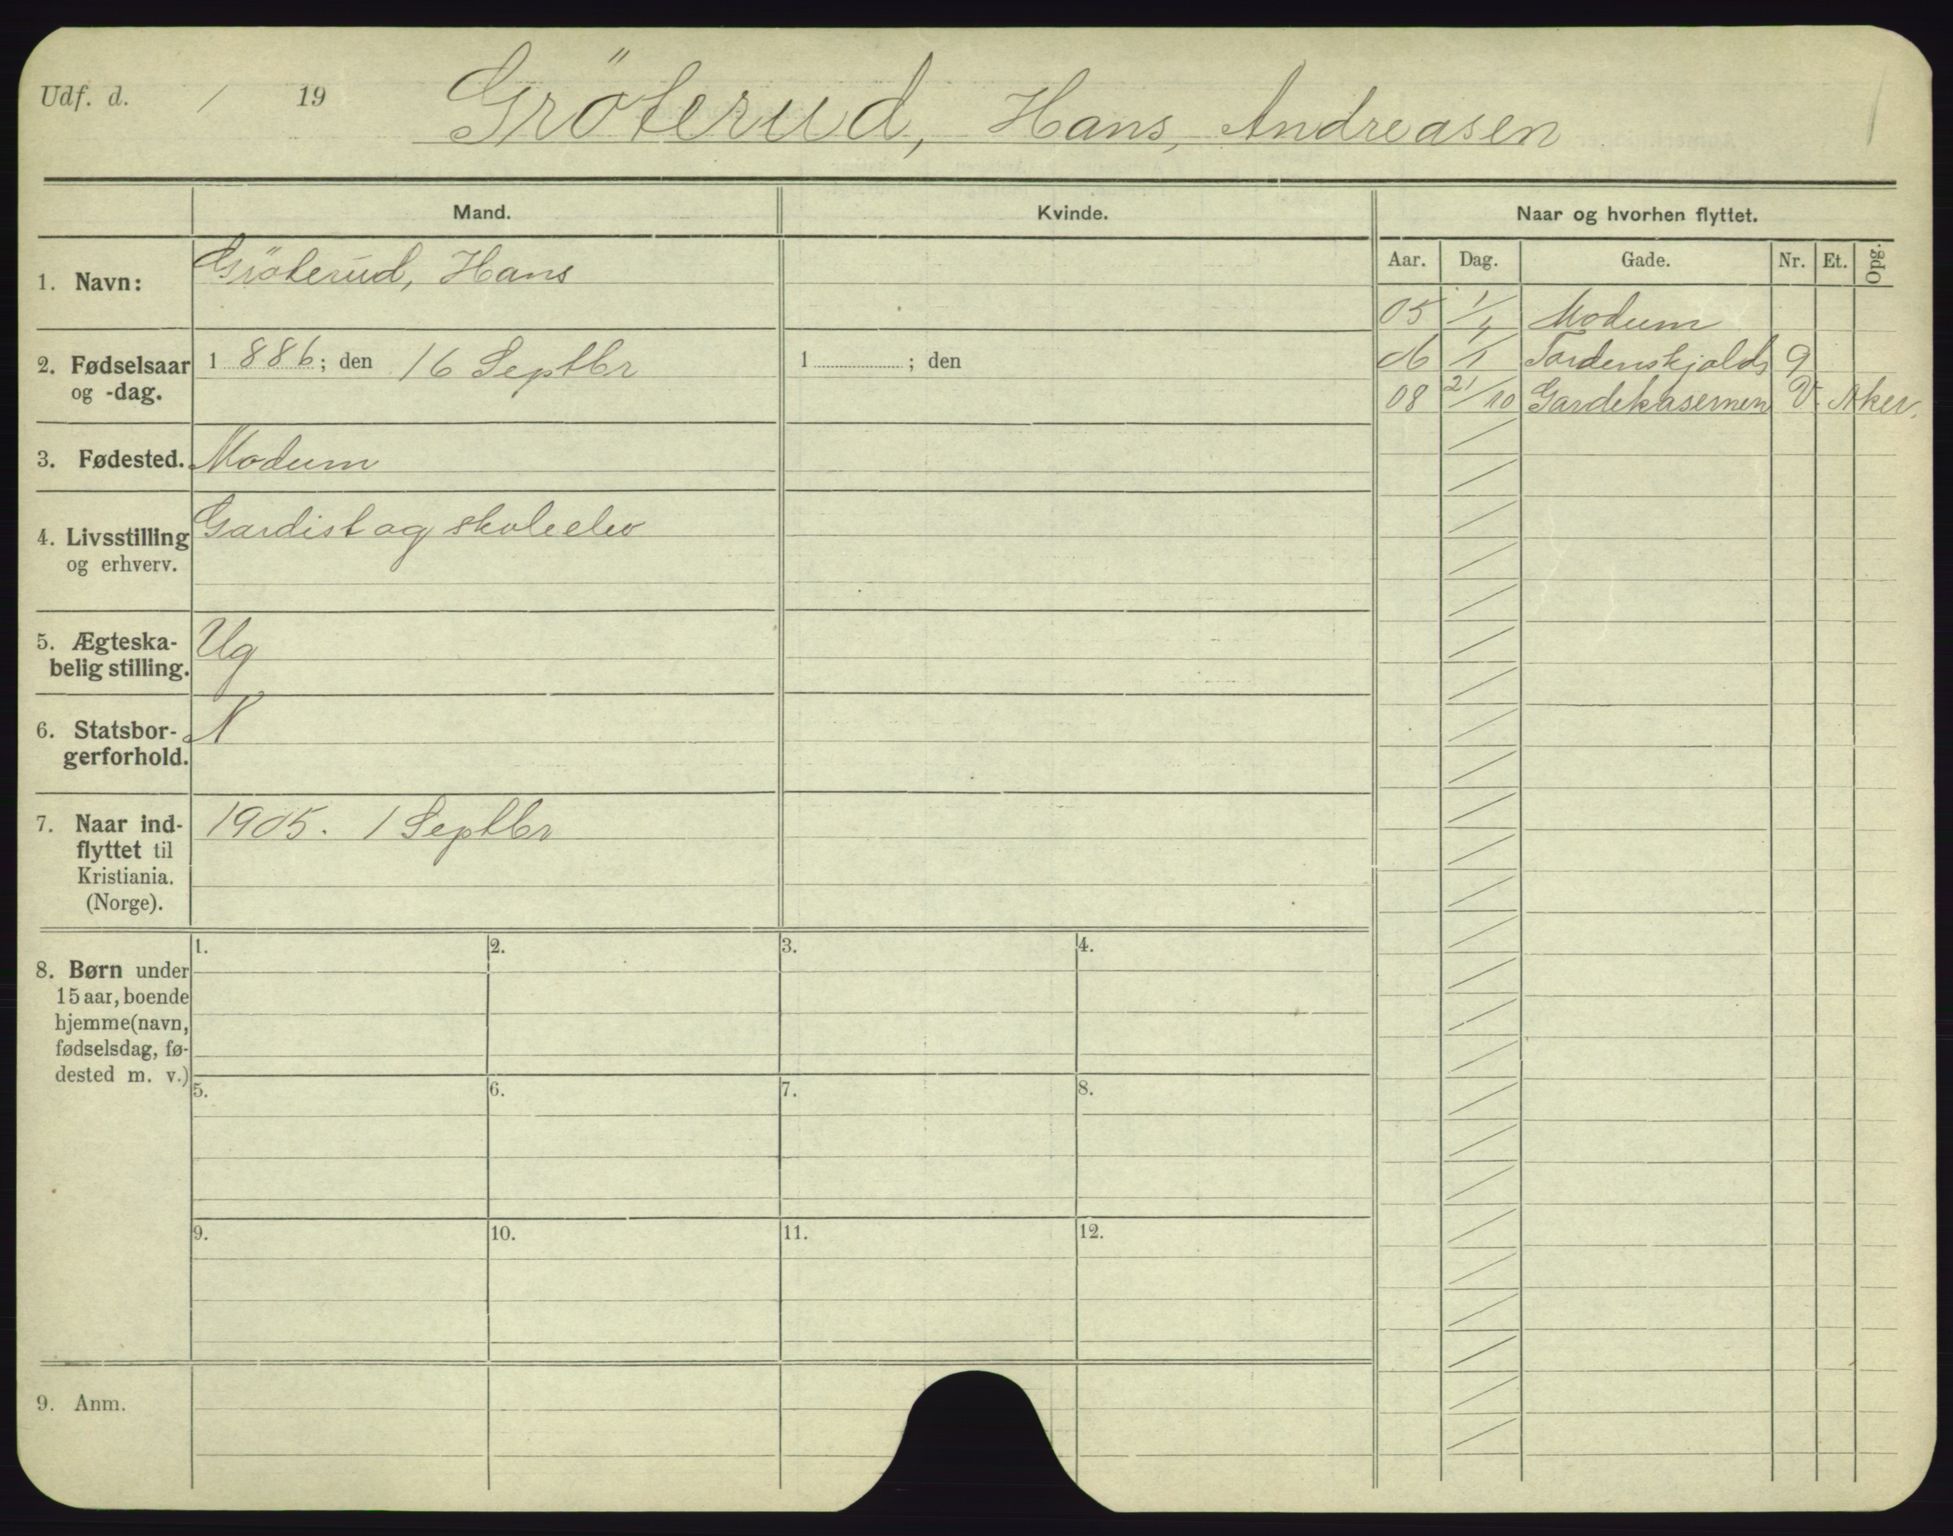 Udf. d. / 19 Gröterud, Hans, Andreasen
Mand. Kvinde. Naar og hvorhen flyttet.
Aar. Dag. Gade. Nr. Et. Opg.
1. Navn: Gröterud, Hans
05 1/4 Modum
06 1/1 Tordenskjolds 9
08 21/10 Gardekasernen V. Aker.
2. Fødselsaar og -dag. 1886; den 16 Septbr
1 ; den
3. Fødested. Modum
4. Livsstilling og erhverv. Gardist og skoleelev
5. Ægteska-
belig stilling. Ug
6. Statsbor-
gerforhold. N
7. Naar ind-
flyttet til
Kristiania.
(Norge).
1905. 1 Septbr
8. Børn under
15 aar, boende
hjemme (navn,
fødselsdag, fø-
dested m. v.)
1. 2. 3. 4.
5. 6. 7. 8.
9. 10. 11. 12.
9. Anm.